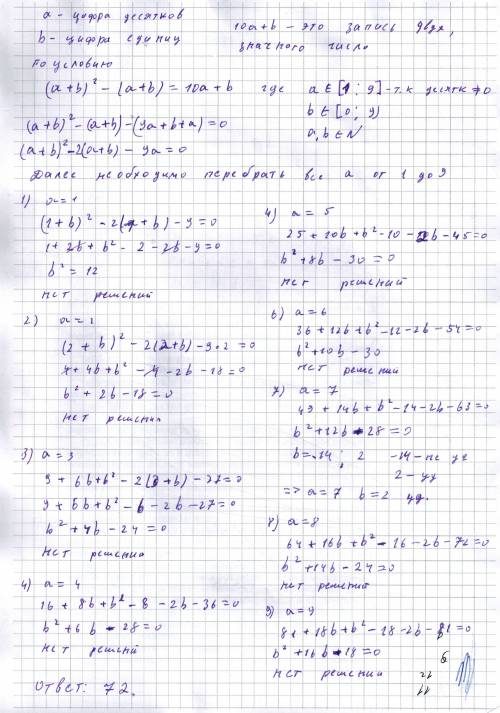 a - цифра десятков
b - цифра единиц
10a+b - это запись двух
значного число
По условию
(a+b)² - (a+b) = 10a+b где a ∈ [1; 9] - т.к десятк ≠0
b ∈ [0; 9)
a,b ∈ N
(a+b)² - (a+b) - (9a+b+a) = 0
(a+b)² - 2(a+b) - 9a = 0
Далее необходимо перебрать все a от 1 до 9
1) a = 1
(1+b)² - 2(1+b) - 9 = 0
1 + 2b + b² - 2 - 2b - 9 = 0
b² = 12
нет решений
2) a = 2
(2+b)² - 2(2+b) - 9·2 = 0
4 + 4b + b² - 4 - 2b - 18 = 0
b² + 2b - 18 = 0
нет решении
3) a = 3
9 + 6b + b² - 2(3+b) - 27 = 0
9 + 6b + b² - 6 - 2b - 27 = 0
b² + 4b - 24 = 0
нет решении
4) a = 4
16 + 8b + b² - 8 - 2b - 36 = 0
b² + 6b - 28 = 0
нет решений
Ответ: 72.
4) a = 5
25 + 10b + b² - 10 - 2b - 45 = 0
b² + 8b - 30 = 0
нет решений
6) a = 6
36 + 12b + b² - 12 - 2b - 54 = 0
b² + 10b - 30
нет решений
7) a = 7
49 + 14b + b² - 14 - 2b - 63 = 0
b² + 12b - 28 = 0
b = -14; 2 -14 - не уд
2 - уд
=> a = 7 b = 2 уд.
8) a = 8
64 + 16b + b² - 16 - 2b - 72 = 0
b² + 14b - 24 = 0
нет решений
9) a = 9
81 + 18b + b² - 18 - 2b - 81 = 0
b² + 16b - 18 = 0
нет решении